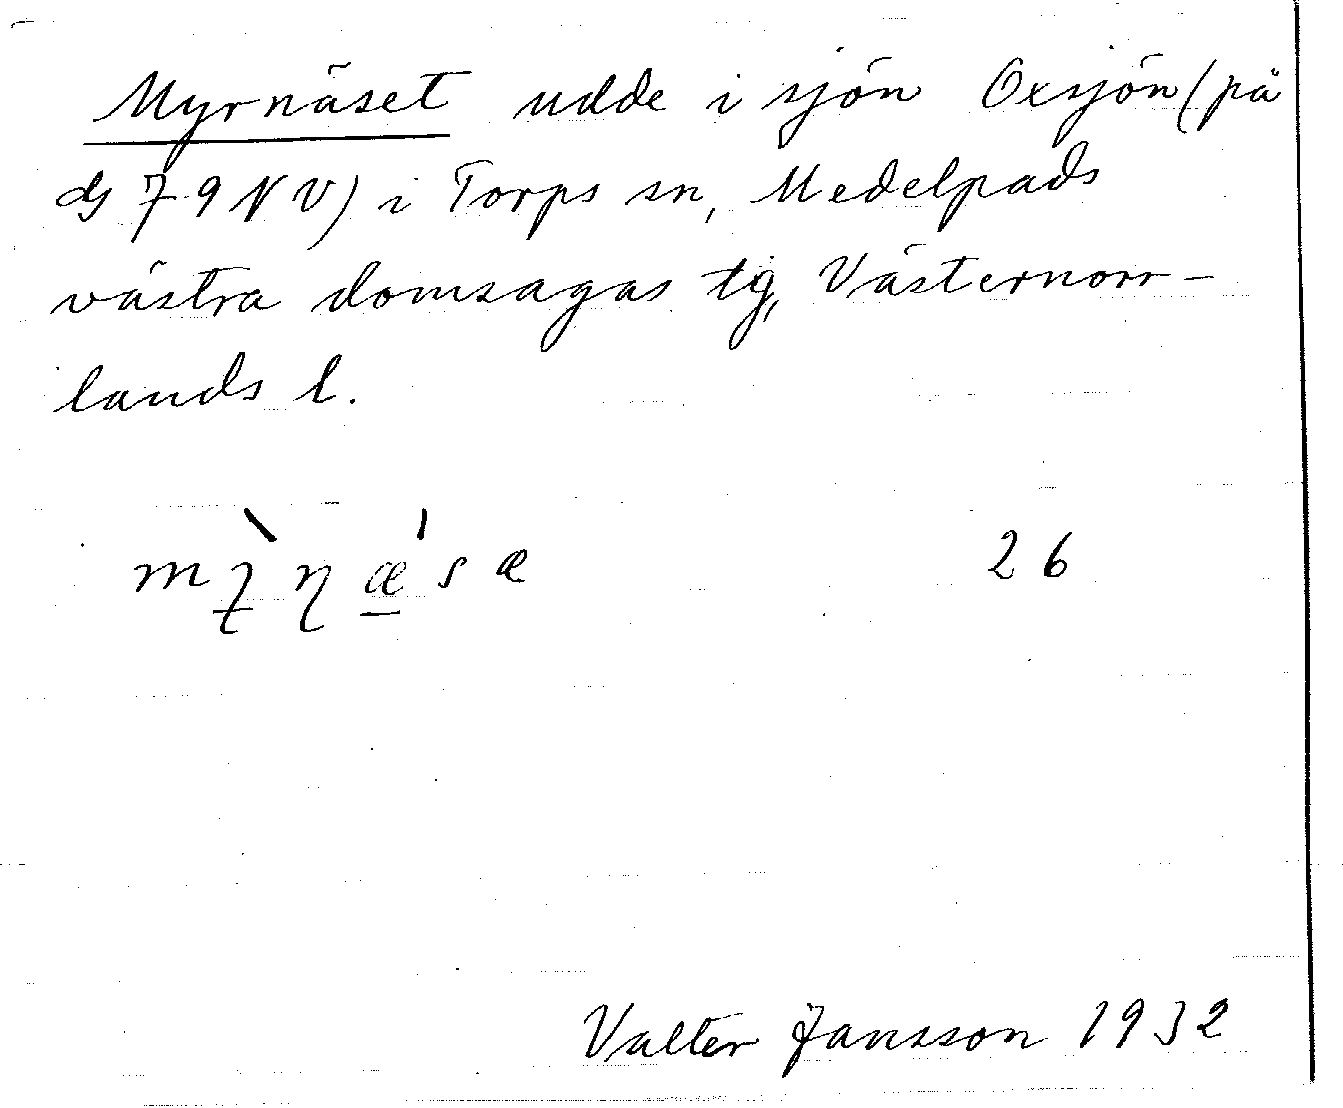 Myrnäset udde i sjön Oxsjön (på
dg 79 NV) i Torps sn, Medelpads
västra domsagas tg, Västernorr-
lands l.
26
Valter Jansson 1932